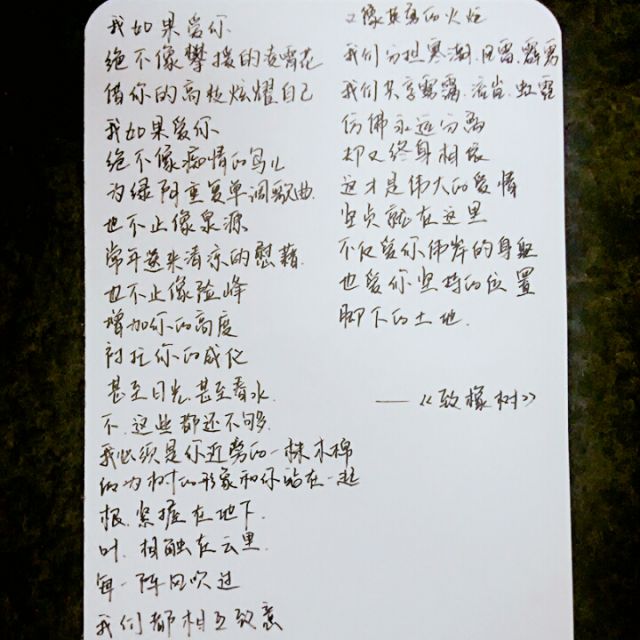 我如果爱你
绝不像攀援的凌霄花
借你的高枝炫耀自己
我如果爱你
绝不像痴情的鸟儿
为绿阴重复单调歌曲
也不止像泉源
常年送来清凉的慰藉
也不止像险峰
增加你的高度
衬托你的威仪
甚至日光,甚至春水.
不,这些都还不够.
我必须是你近旁的一株木棉
做为树的形象和你站在一起
根,紧握在地下.
叶,相融在云里.
每一阵风吹过
我们都相互致意
又像英勇的火炬
我们分担寒潮、风雷、霹雳
我们共享雾霭、流岚、虹霓
仿佛永远分离
却又终身相依
这才是伟大的爱情
坚贞就在这里
不仅爱你伟岸的身躯
也爱你坚持的位置
脚下的土地.
——《致橡树》